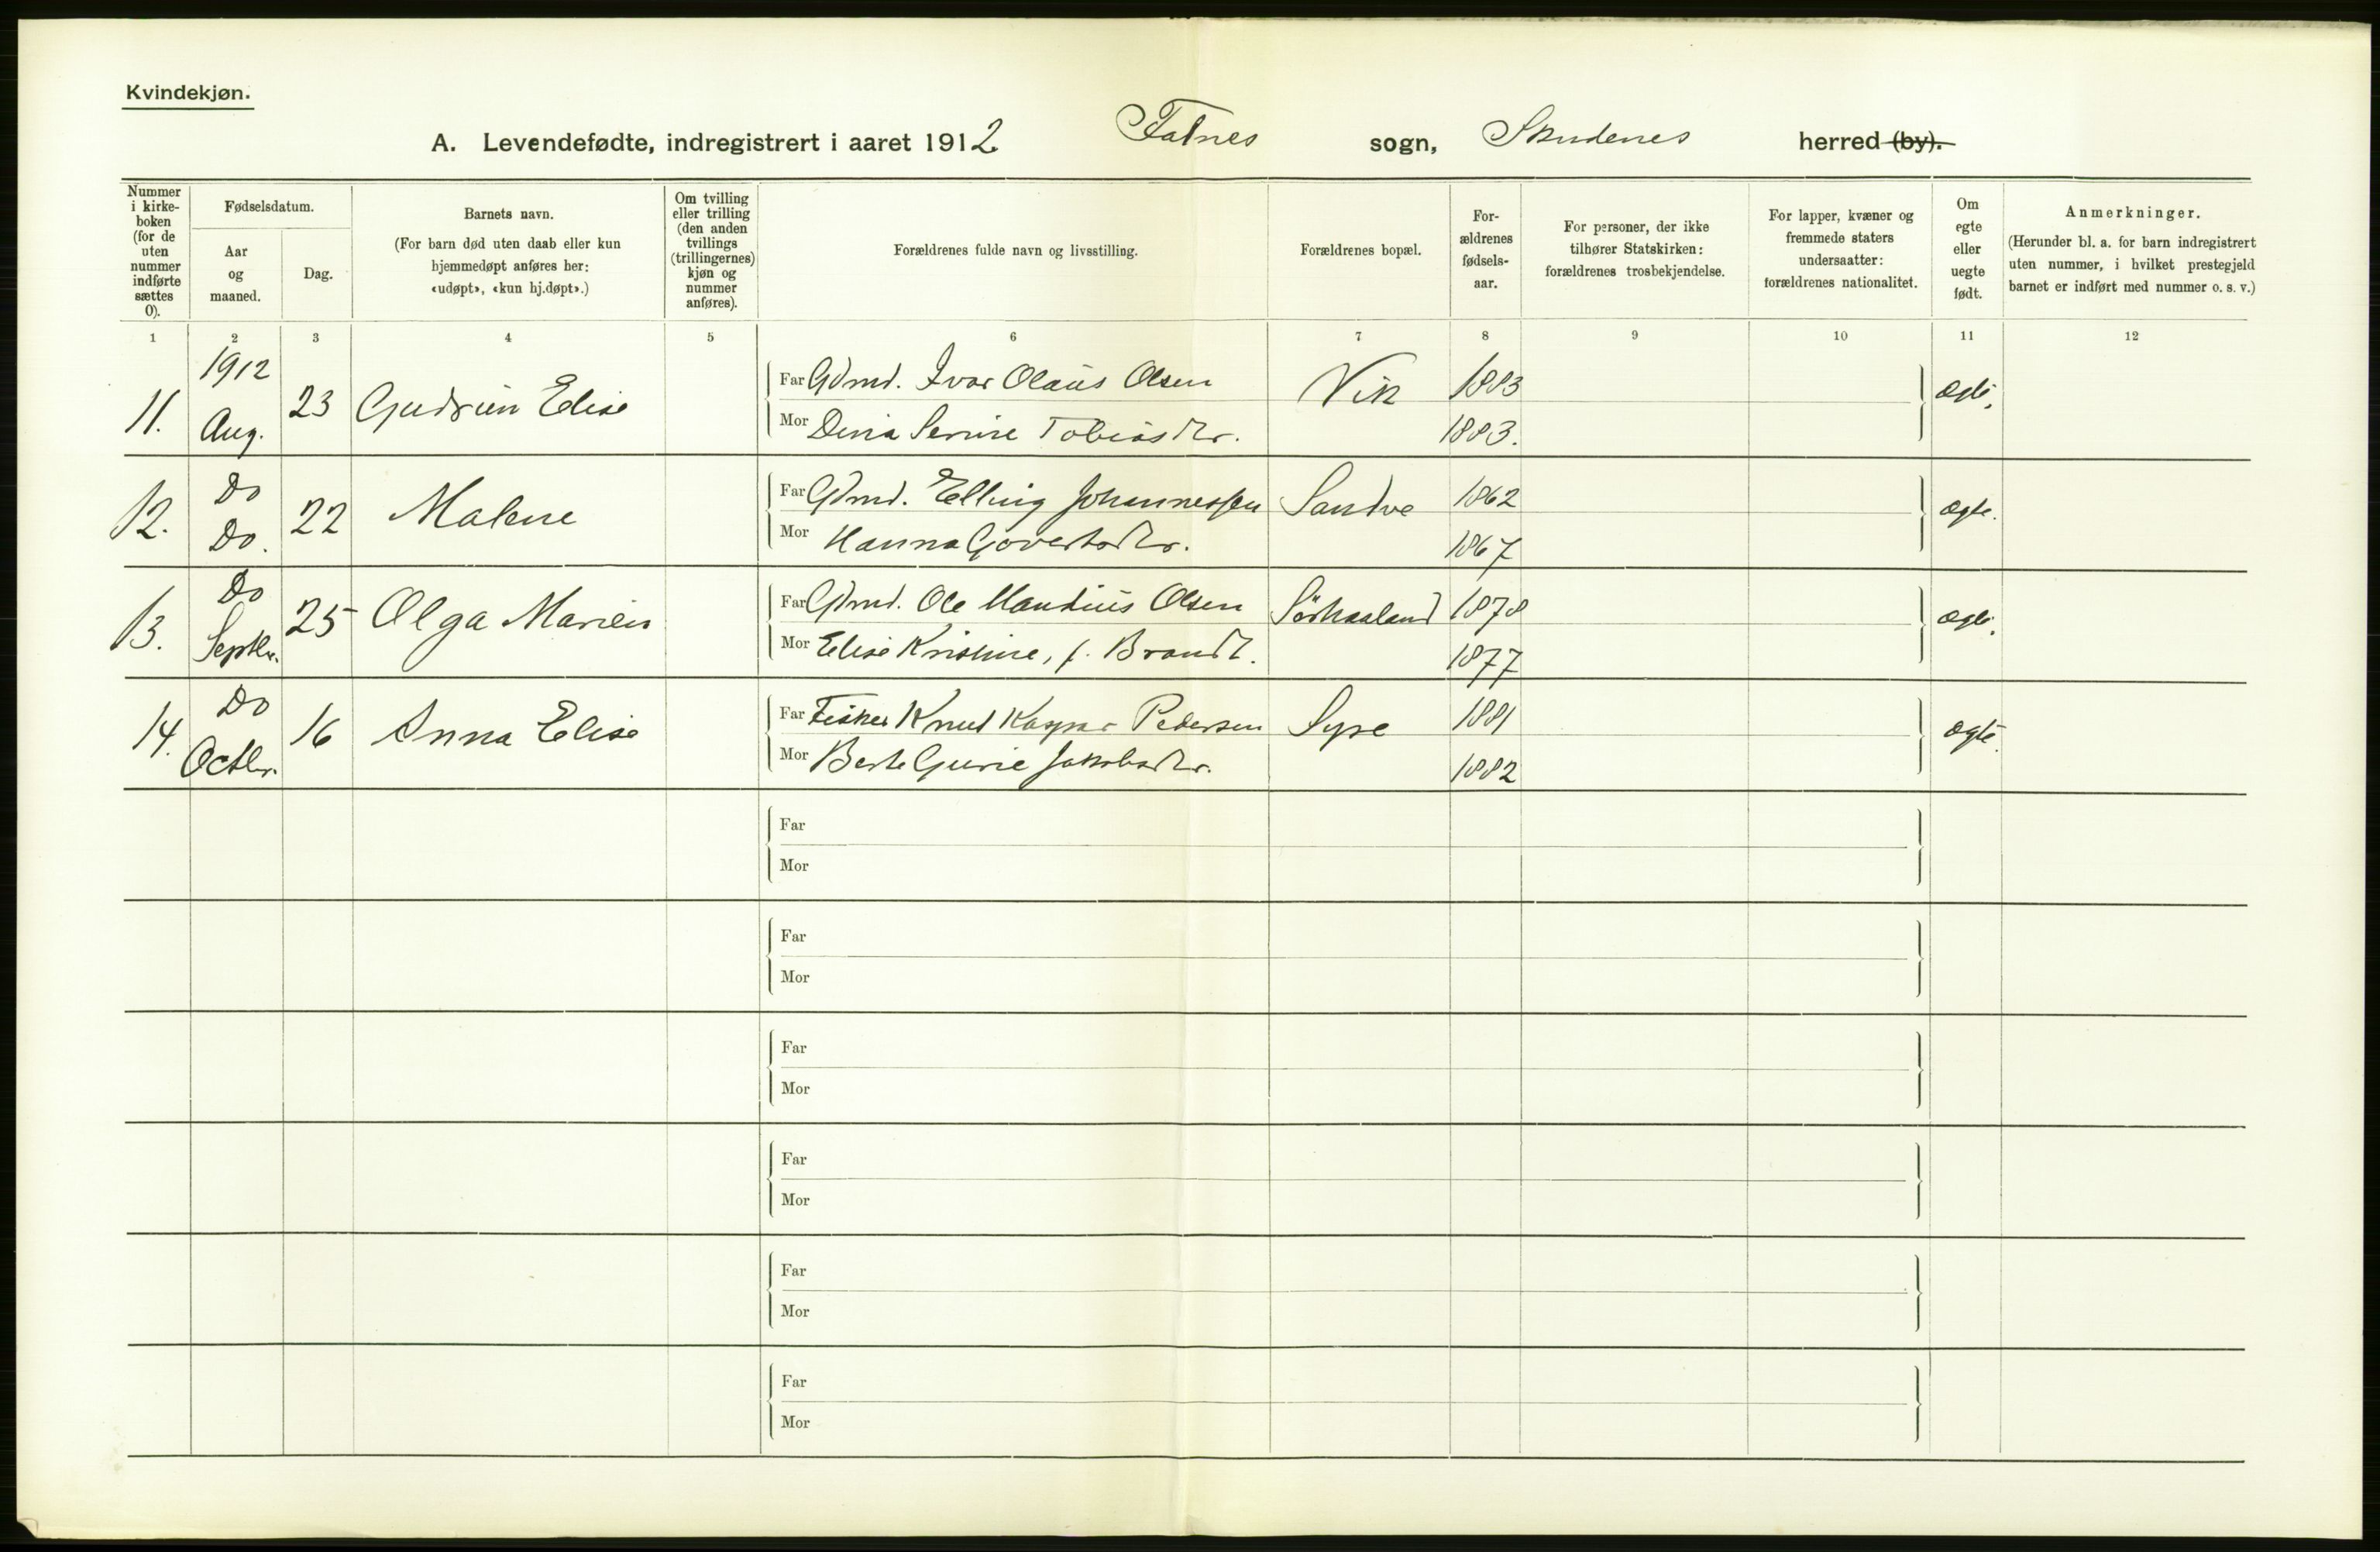 Kvindekjøn.
A. Levendefødte, indregistrert i aaret 1912 Falnes sogn, Skudenes herred (by).
Nummer i kirke-boken (for de uten nummer indførte sættes 0).
Fødselsdatum.
Aar og maaned.
Dag.
Barnets navn.
(For barn død uten daab eller kun hjemmedøpt anføres her: «udøpt», «kun hj.døpt».)
Om tvilling eller trilling (den anden tvillings (trillingernes) kjøn og nummer anføres).
Forældrenes fulde navn og livsstilling.
Forældrenes bopæl.
For-ældrenes fødsels-aar.
For personer, der ikke tilhører Statskirken: forældrenes trosbekjendelse.
For lapper, kvæner og fremmede staters undersaatter: forældrenes nationalitet.
Om egte eller uegte født.
Anmerkninger.
(Herunder bl. a. for barn indregistrert uten nummer, i hvilket prestegjeld barnet er indført med nummer o. s. v.)
1 2 3 4 5 6 7 8 9 10 11 12
11. 1912 Aug. 23 Gudrun Elise Far Gdmd. Ivar Olaus Olsen Vik 1883 ægte.
Mor Dina Serine Tobiasdtr. 1883.
12. Do Do. 22 Malene Far Gdmd. Elling Johannessen Sandve 1862 ægte.
Mor Hanna Govertsdtr. 1867
13. Do Septbr. 25 Olga Marien Far Gdmd. Ole Mandius Olsen Sörhaaland 1878 ægte.
Mor Elise Kristine, f. Brandt. 1877
14. Do Octbr. 16 Anna Elise Far Fisker Knut Kaspar Pedersen Syre 1881 ægte.
Mor Berte Gurie Jakobsdtr. 1882
Far
Mor
Far
Mor
Far
Mor
Far
Mor
Far
Mor
Far
Mor